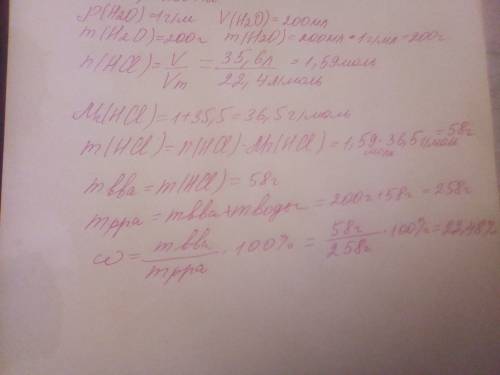 ρ(H2O)=1г/мл V(H2O)=200мл
m(H2O)=200г m(H2O)=200мл*1г/мл=200г
n(HCl)=V/Vm=35,6л/22,4л/моль=1,59моль
Mr(HCl)=1+35,5=36,5г/моль
m(HCl)=n(HCl)·Mr(HCl)=1,59моль·36,5г/моль=58г
mвва=m(HCl)=58г
mрра=mвва+mводы=200г+58г=258г
ω=mвва/mрра·100%=58г/258г·100%=22,48%